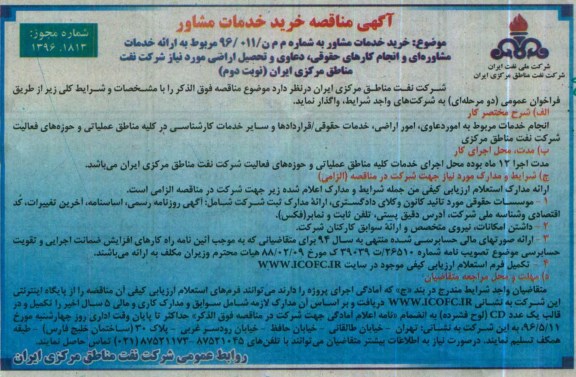 آگهی مناقصه خرید خدمات مشاور
شماره مجوز:
۱۳۹۶.۱۸۱۳
شرکت ملی نفت ایران
شرکت نفت مناطق مرکزی ایران
موضوع: خرید خدمات مشاور به شماره م م ن/۹۶/۰۱۱ مربوط به ارائه خدمات
مشاوره‌ای و انجام کارهای حقوقی، دعاوی و تحصیل اراضی مورد نیاز شرکت نفت
مناطق مرکزی ایران (نوبت دوم)
شرکت نفت مناطق مرکزی ایران درنظر دارد موضوع مناقصه فوق الذکر را با مشخصات و شرایط کلی زیر از طریق
فراخوان عمومی (دو مرحله‌ای) به شرکت‌های واجد شرایط، واگذار نماید.
الف) شرح مختصر کار
انجام خدمات مربوط به اموردعاوی، امور اراضی، خدمات حقوقی/قراردادها و سایر خدمات کارشناسی در کلیه مناطق عملیاتی و حوزه‌های فعالیت
شرکت نفت مناطق مرکزی
ب) مدت، محل اجرای کار
مدت اجرا ۱۲ ماه بوده محل اجرای خدمات کلیه مناطق عملیاتی و حوزه‌های فعالیت شرکت نفت مناطق مرکزی ایران می‌باشد.
ج) شرایط و مدارک مورد نیاز جهت شرکت در مناقصه (الزامی)
ارائه مدارک استعلام ارزیابی کیفی من جمله شرایط و مدارک اعلام شده زیر جهت شرکت در مناقصه الزامی است.
۱ - موسسات حقوقی مورد تائید کانون وکلای دادگستری، ارائه مدارک ثبت شرکت شامل: آگهی روزنامه رسمی، اساسنامه، آخرین تغییرات، کد
اقتصادی وشناسه ملی شرکت، آدرس دقیق پستی، تلفن ثابت و نمابر(فکس).
۲ - داشتن امکانات، نیروی متخصص و ارائه سوابق کارکنان شرکت.
۳ - ارائه صورتهای مالی حسابرسی شده منتهی به سال ۹۴ برای متقاضیانی که به موجب آئین نامه راه کارهای افزایش ضمانت اجرایی و تقویت
حسابرسی موضوع تصویب نامه شماره ۲۶۵۱۰/ت ۳۹۰۳۹ ک مورخ ۸۸/۰۲/۰۹ هیات محترم وزیران مکلف به ارائه می‌باشند.
۴ - تکمیل فرم استعلام ارزیابی کیفی موجود در سایت WWW.ICOFC.IR
د) مهلت و محل مراجعه متقاضیان
متقاضیان واجد شرایط مندرج در بند «ج» که آمادگی اجرای پروژه را دارند می‌توانند فرم‌های استعلام ارزیابی کیفی آن مناقصه را از پایگاه اینترنتی
این شرکت به نشانی WWW.ICOFC.IR دریافت و بر اساس آن مدارک لازمه شامل سوابق و مدارک کاری و مالی ۵ سال اخیر را تکمیل و در
قالب یک عدد CD (لوح فشرده) به انضمام «نامه اعلام آمادگی جهت شرکت در مناقصه فوق الذکر» حداکثر تا پایان وقت اداری روز چهارشنبه مورخ
۹۶/۵/۱۱ به این شرکت به نشانی: تهران - خیابان طالقانی - خیابان حافظ - خیابان رودسر غربی - پلاک ۳۰ (ساختمان خلیج فارس) - طبقه
همکف تسلیم نمایند. درصورت نیاز به اطلاعات بیشتر متقاضیان می‌توانند با تلفن‌های ۸۷۵۲۱۰۲۵-۸۷۵۲۱۱۷۳ (۰۲۱) تماس حاصل نمایند.
روابط عمومی شرکت نفت مناطق مرکزی ایران